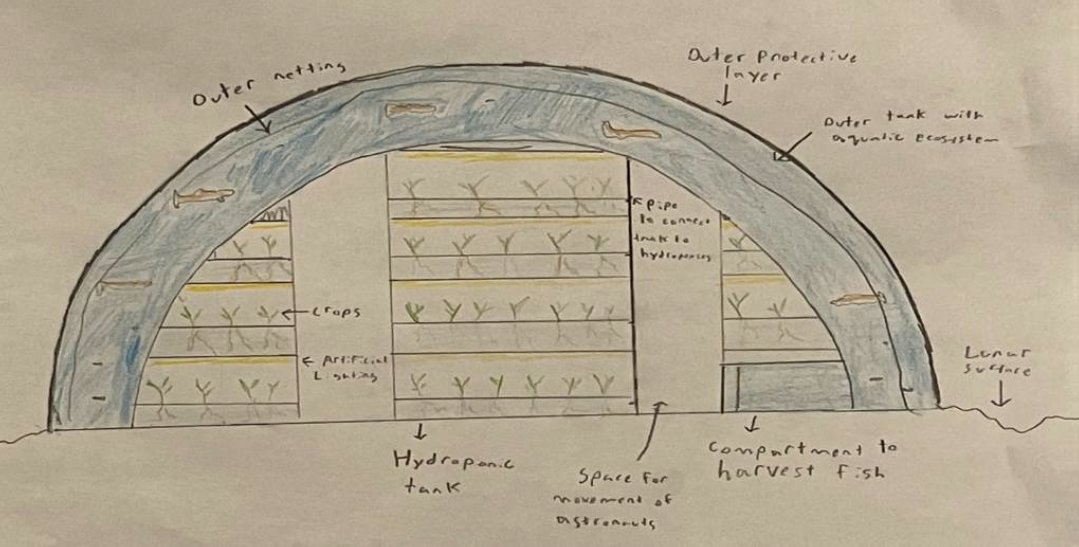 Outer netting
Outer Protective
layer
Outer tank with
aquatic ecosystem
pipe
to connect
tank to
hydroponics
crops
Artificial
Lighting
Lunar
Surface
Hydroponic
tank
Space for
movement of
astronauts
Compartment to
harvest fish